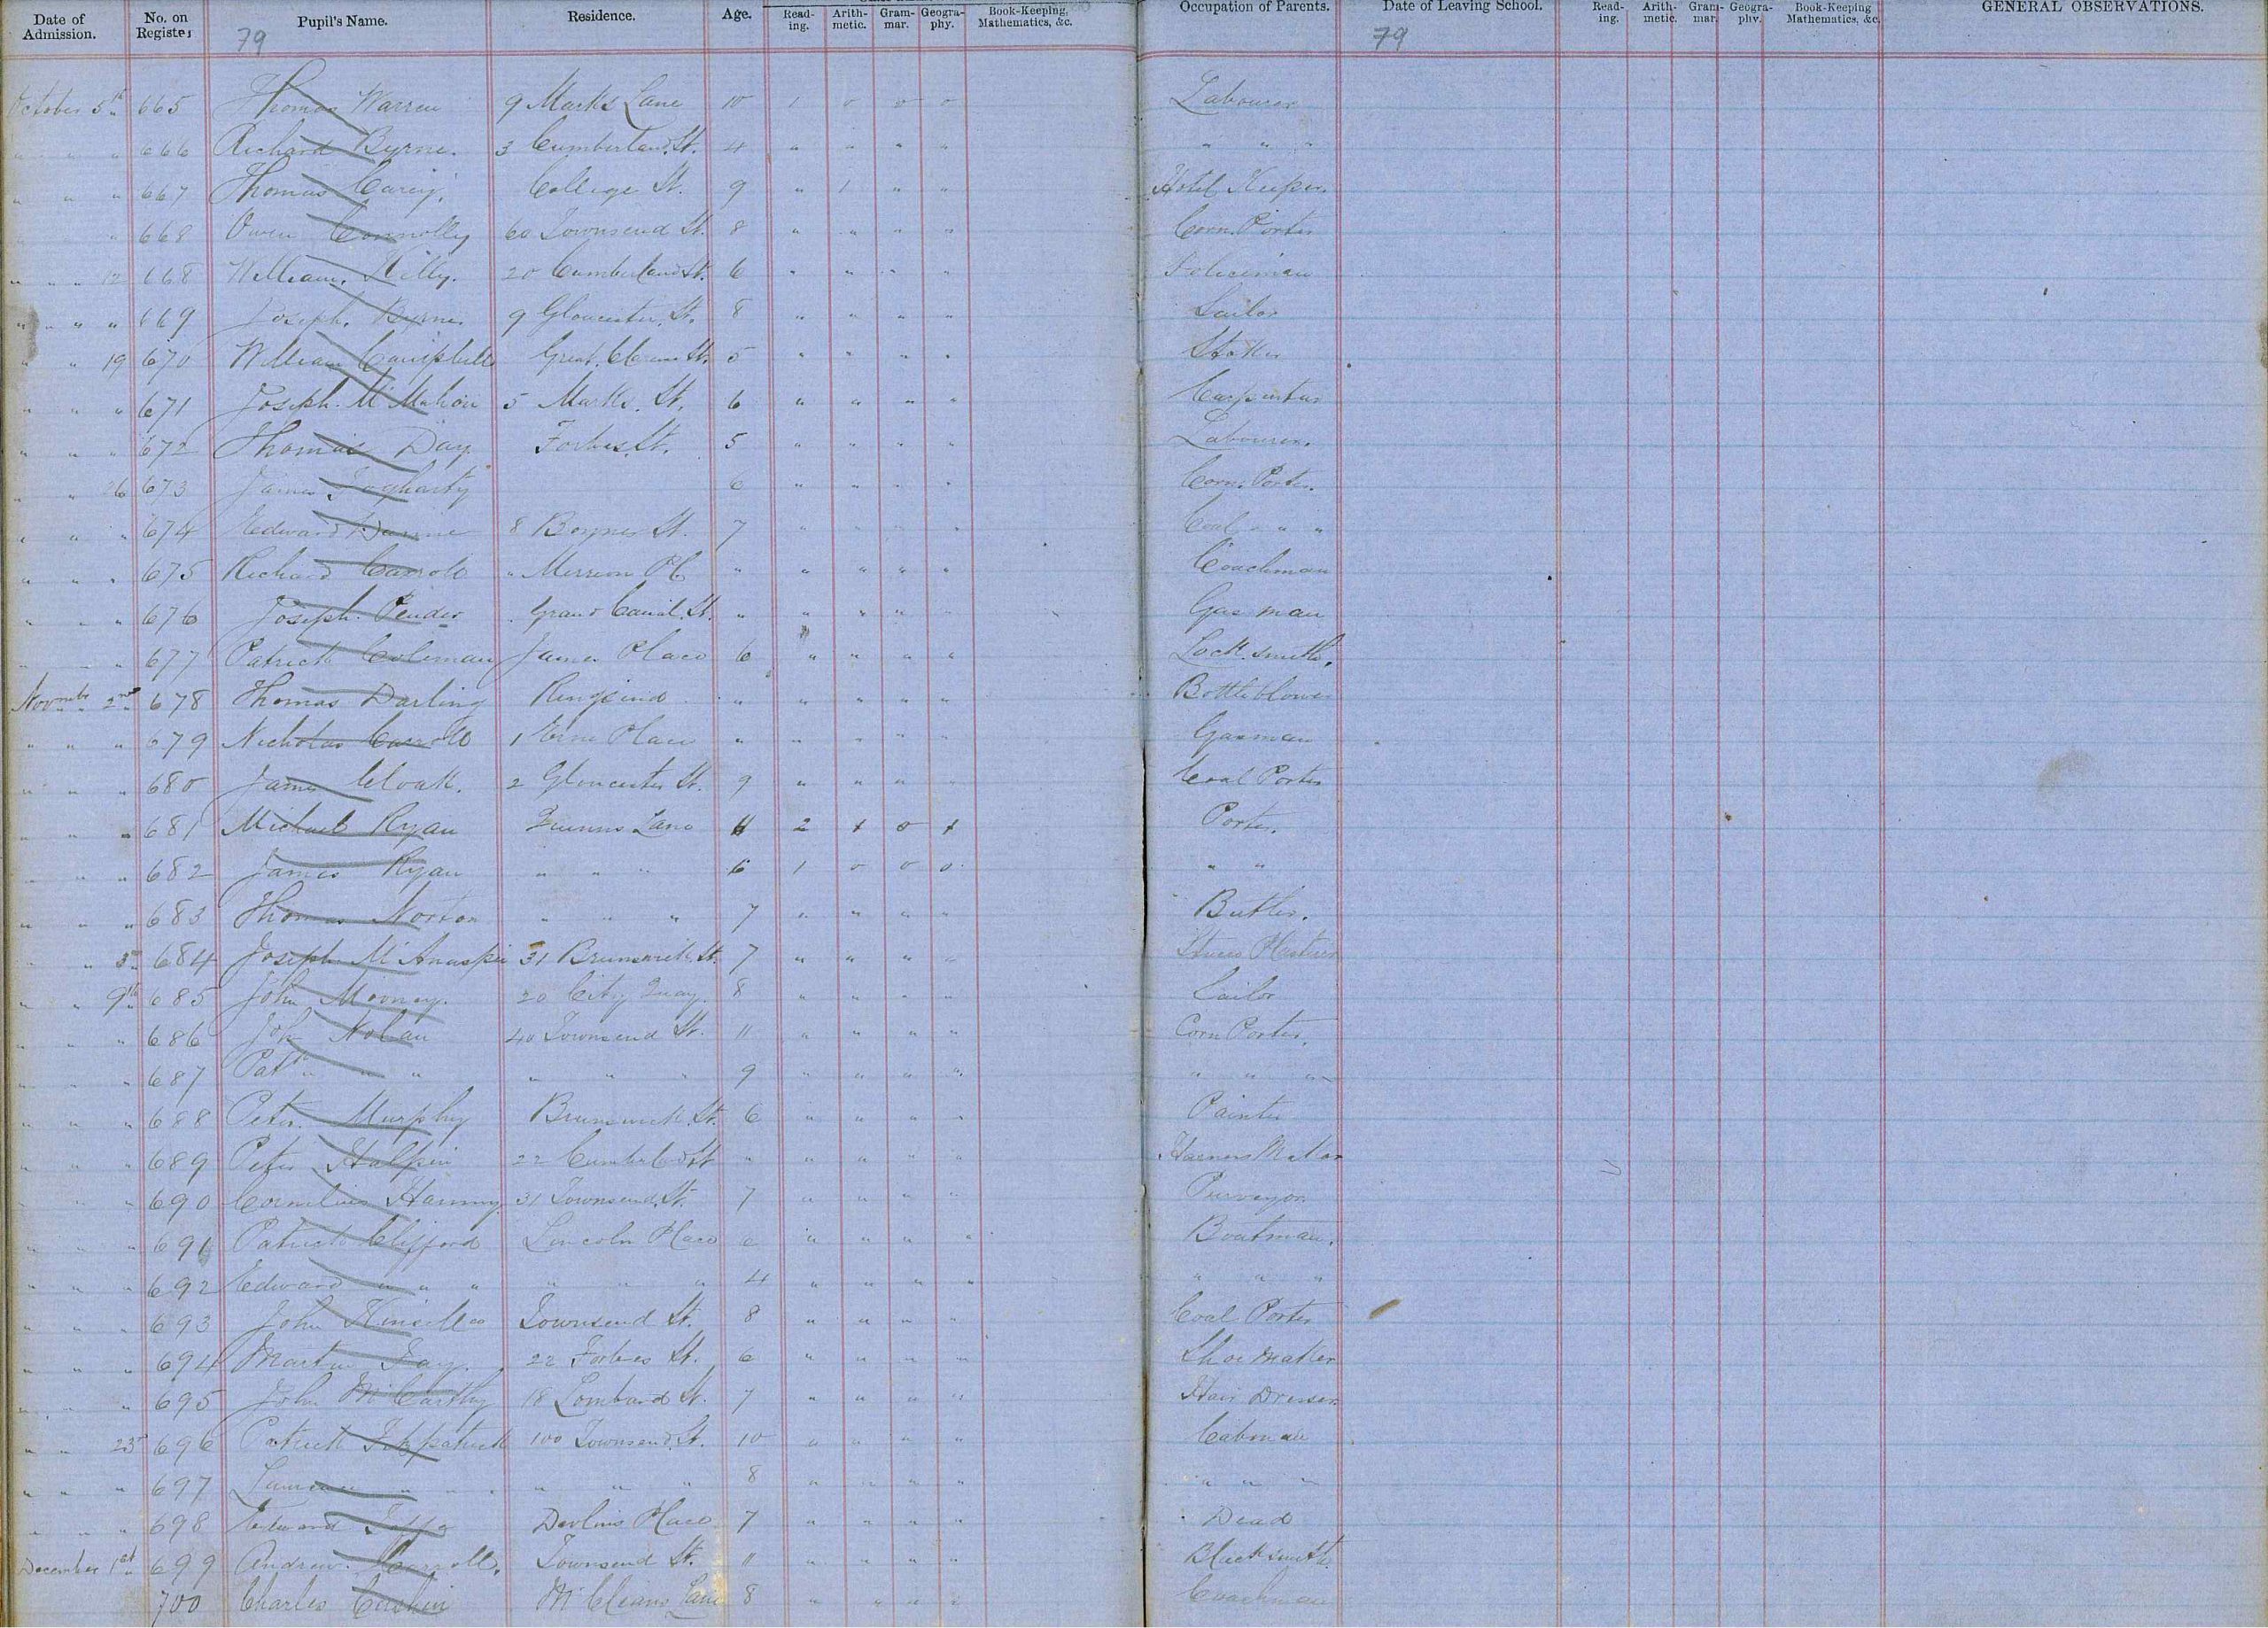 Date of Admission. No. on Register Pupil's Name. Residence. Age. Read- ing. Arith- metic. Gram- mar. Geogra- phy. Book-Keeping, Mathematics, &c. Occupation of Parents. Date of Leaving School. Read- ing. Arith- metic. Gram- mar. Geogra- phy. Book-Keeping Mathematics, &c. GENERAL OBSERVATIONS.
79 79
October 5th 665 Thomas Warren 9 Marks Lane 10 1 0 0 0 Labourer
" " " 666 Richard Byrne. 3 Cumberland St. 4 " " " " " " "
" " " 667 Thomas Carey. College St. 9 " 1 " " Hotel Keeper.
" 668 Owen Connolly 60 Townsend St. 8 " " " " Corn. Porter
" " " 12 668 William. Kelly. 20 Cumberland St. 6 " " " " Policeman
" " " " 669 Joseph. Byrne. 9 Gloucester. St. 8 " " " " Sailor
" " 19 670 William Campbell Great. Clarence St. 5 " " " " Stoker
" " " 671 Joseph. McMahon 5 Marks. St. 6 " " " " Carpenter
" " " 672 Thomas Day Forbes. St. 5 " " " " Labourer.
" " 26 673 James Fogharty 6 " " " " Corn. Porter.
" " " 674 Edward 8 Boynes St. 7 " " " " Coal " " "
" " " 675 Richard Carroll " Merrion Pl " " " " " Coachman
" " " 676 Joseph. Pender Grand Canal. St. " " " " " Gas man
" " " 677 Patrick Coleman James Place 6 " " " " Lock. smith.
November 2nd 678 Thomas Darling Ringsend " " " " " Bottle blower
" " " 679 Nicholas Carroll 1 Erne Place " " " " " Gasman
" " " 680 James Cloak. 2 Gloucester St. 9 " " " " Coal Porter
" " " 681 Michael Ryan Quinns Lane 2 1 0 1 Porter.
" " " 682 James Ryan " " " 6 1 0 0 0 " "
" " " 683 Thomas Norton " " " 7 " " " " Butler.
" " 5 684 Joseph McAnaspie 31 Brunswick St. 7 " " " " Stucco Plasterer
" " 9th 685 John Mooney. 20 City Quay. 8 " " " " Sailor
" " " 686 Joh Nolan 40 Townsend St. 11 " " " " Corn Porter.
" " " 687 Patk " " " " " 9 " " " " " " "
" " " 688 Peter. Murphy Brunswick. St. 6 " " " " Painter
" " " 689 Peter Halpin 22 Cumberland St " " " " " Harness Maker
" " " 690 Cornelius 31 Townsend. St. 7 " " " " Purveyor
" " " 691 Patrick Clifford Lincoln Place " " " " Boatman.
" " " 692 Edward " " " " " " 4 " " " " " " "
" " " 693 John Kinsella Townsend St. 8 " " " " Coal Porter
" " " 694 Martin Fay. 22 Forbes St. 6 " " " " Shoe Maker
" " " 695 John McCarthy 18 Lombard St. 7 " " " " Hair Dresser
" " 23 696 Patrick Fitzpatrick 100 Townsend. St. 10 " " " " Cabman
" " " 697 Lawrence " " " " " " 8 " " " " " " "
" " " 698 Edward Devlins Place 7 " " " " Dead
December 1st 699 Andrew. Carroll. Townsend St. 11 " " " " Blacksmith.
700 Charles Cashin McCleans Lane 8 " " " " Coachman